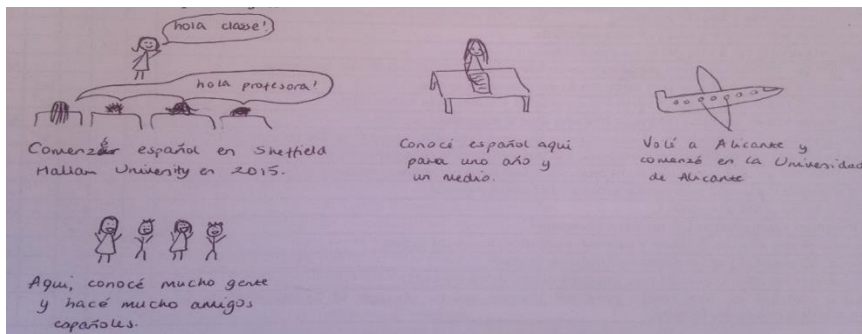 hola classe!
hola profesora!
Comenzé español en Sheffield
Hallam University en 2015.
Conocé español aqui
para uno año y
un medio.
Volé a Alicante y
comenzé en la Universidad
de Alicante
Aqui, conocé mucho gente
y hacé mucho amigos
españoles.